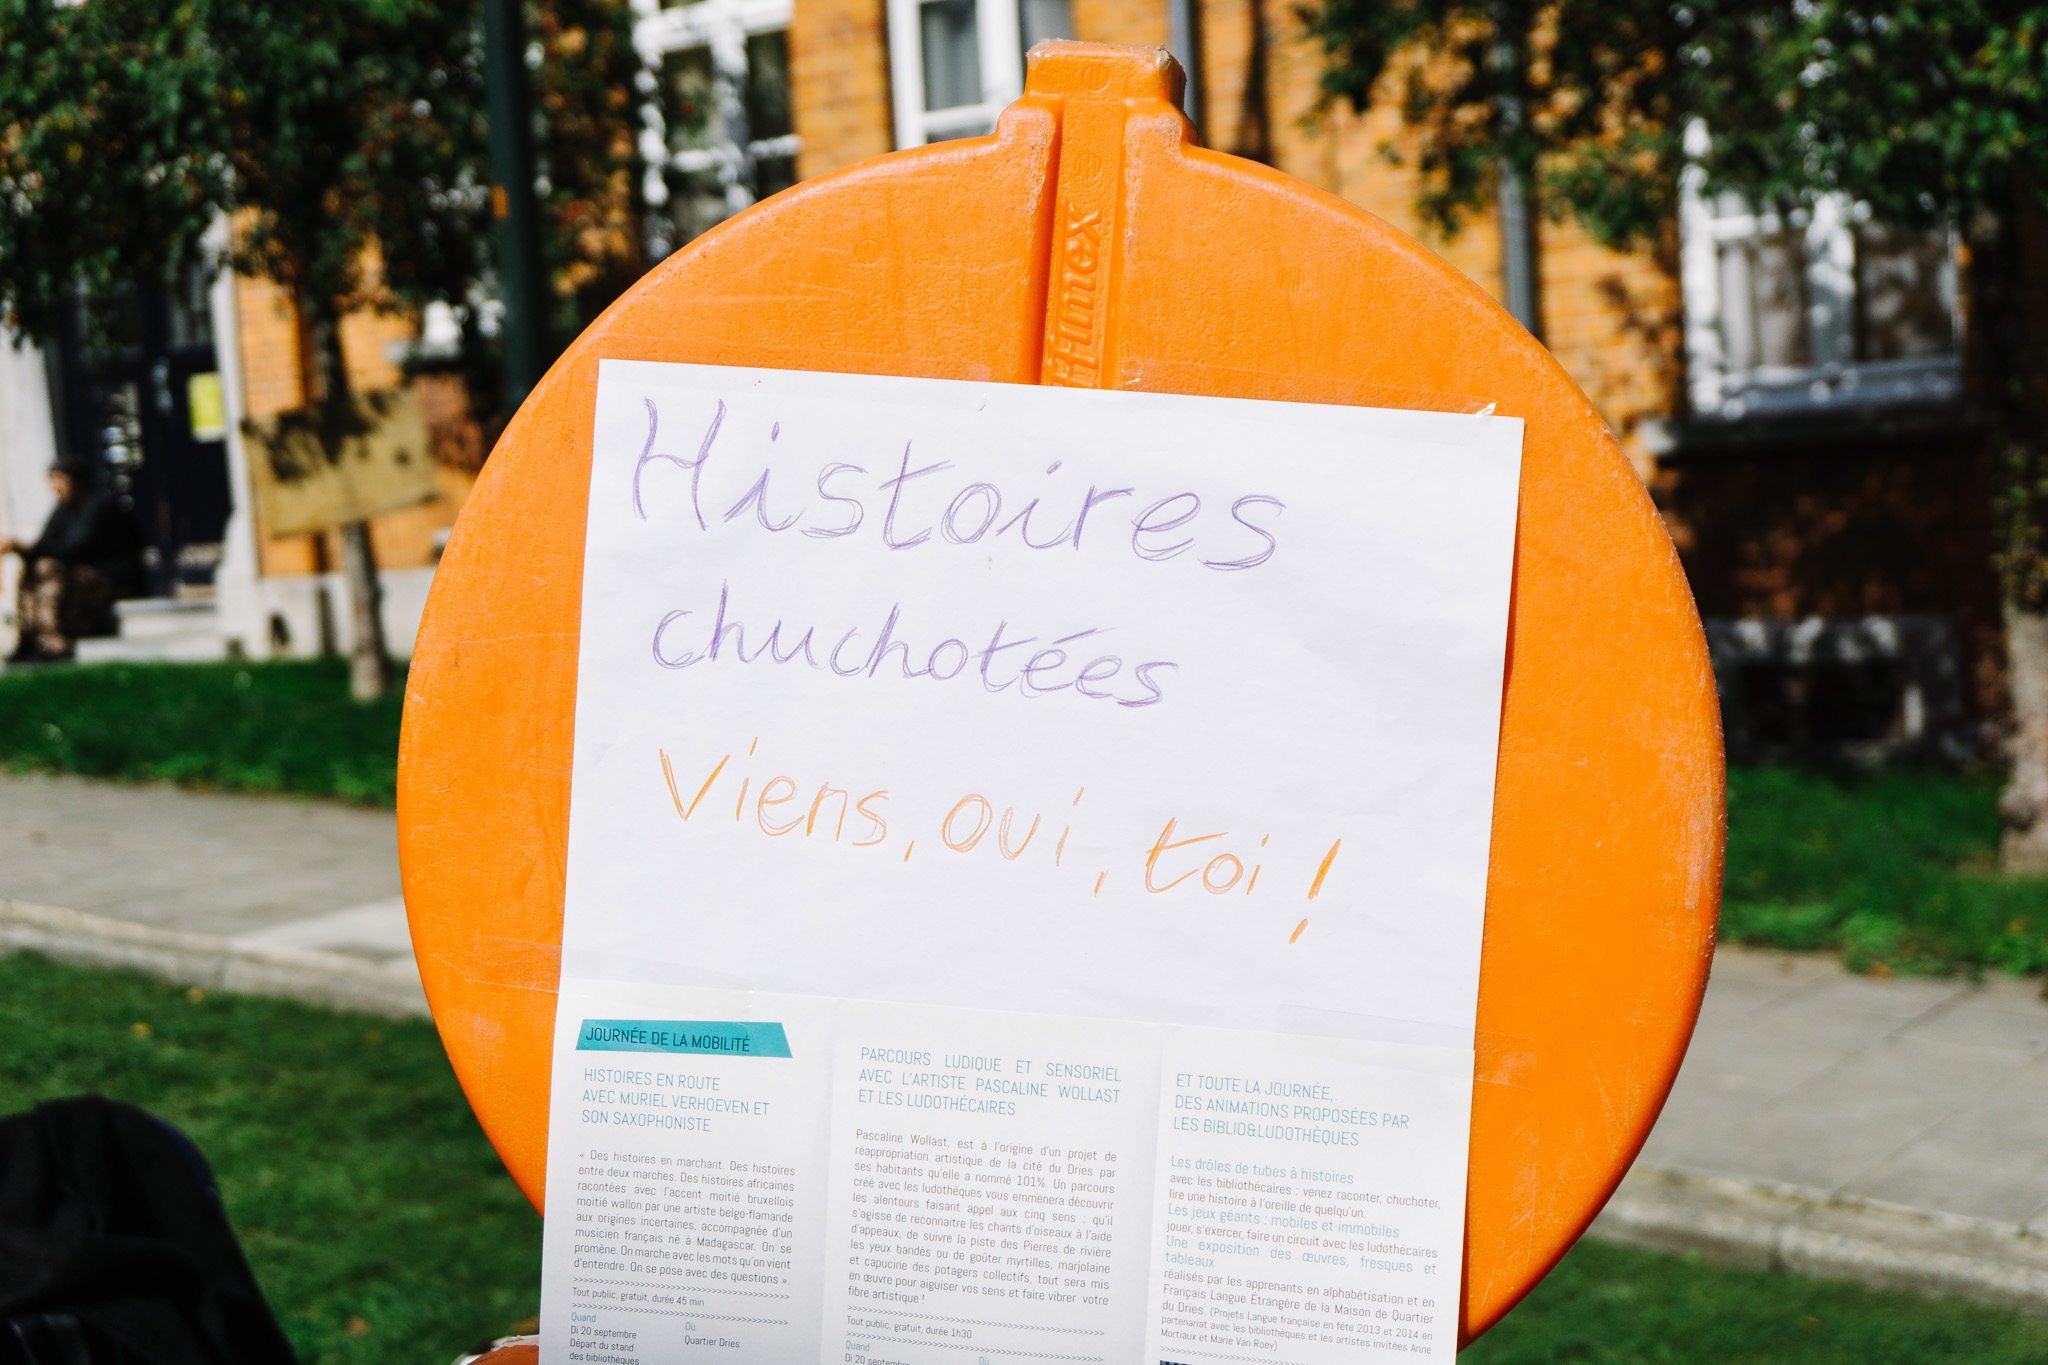 Histoires
chuchotées
Viens, oui, toi !
JOURNÉE DE LA MOBILITÉ
HISTOIRES EN ROUTE
AVEC MURIEL VERHOEVEN ET
SON SAXOPHONISTE
« Des histoires en marchant. Des histoires
entre deux marches. Des histoires africaines
racontées avec l'accent moitié bruxellois
moitié wallon par une artiste belgo-flamande
aux origines incertaines, accompagnée d'un
musicien français né à Madagascar. On se
promène. On marche avec les mots qu'on vient
d'entendre. On se pose avec des questions ».
Tout public, gratuit, durée 45 min
Quand
Di 20 septembre
Départ du stand
des bibliothèques
Où
Quartier Dries
PARCOURS LUDIQUE ET SENSORIEL
AVEC L'ARTISTE PASCALINE WOLLAST
ET LES LUDOTHÉCAIRES
Pascaline Wollast, est à l'origine d'un projet de
réappropriation artistique de la cité du Dries par
ses habitants qu'elle a nommé 101%. Un parcours
créé avec les ludothèques vous emmènera découvrir
les alentours faisant appel aux cinq sens : qu'il
s'agisse de reconnaitre les chants d'oiseaux à l'aide
d'appeaux, de suivre la piste des Pierres de rivière
les yeux bandés ou de goûter myrtilles, marjolaine
et capucine des potagers collectifs, tout sera mis
en œuvre pour aiguiser vos sens et faire vibrer votre
fibre artistique !
Tout public, gratuit, durée 1h30
Quand
Di 20 septembre
Où
ET TOUTE LA JOURNÉE,
DES ANIMATIONS PROPOSÉES PAR
LES BIBLIO&LUDOTHÈQUES
Les drôles de tubes à histoires
avec les bibliothécaires : venez raconter, chuchoter,
lire une histoire à l'oreille de quelqu'un.
Les jeux géants : mobiles et immobiles
jouer, s'exercer, faire un circuit avec les ludothécaires
Une exposition des œuvres, fresques et
tableaux
réalisés par les apprenants en alphabétisation et en
Français Langue Étrangère de la Maison de Quartier
du Dries. (Projets Langue française en fête 2013 et 2014 en
partenariat avec les bibliothèques et les artistes invitées Anne
Mortiaux et Marie Van Roey)